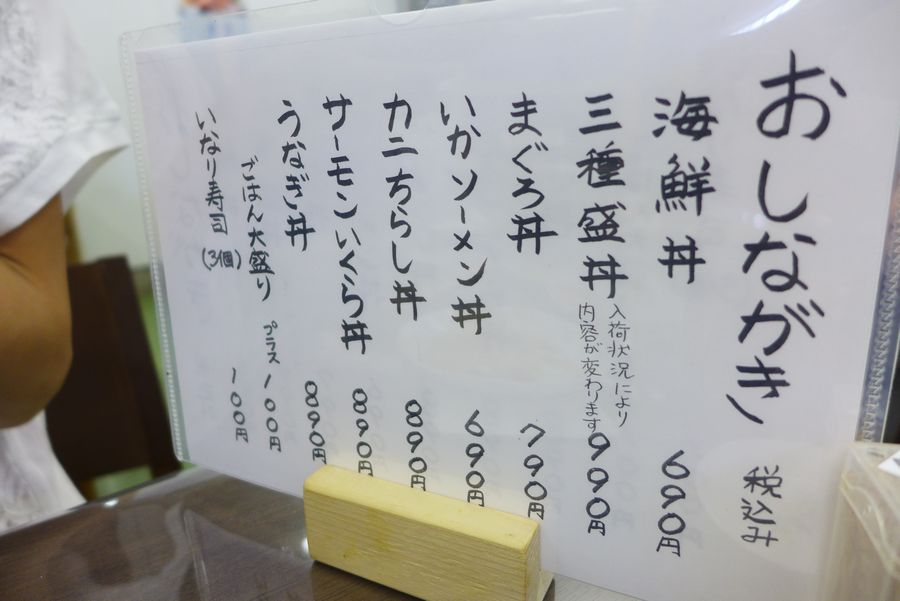 おしながき 税込み
海鮮丼 690円
三種盛丼 入荷状況により
内容が変わります 990円
まぐろ丼 790円
いかソーメン丼 690円
カニちらし丼 890円
サーモンいくら丼 890円
うなぎ丼 890円
ごはん大盛り プラス100円
いなり寿司(3個) 100円